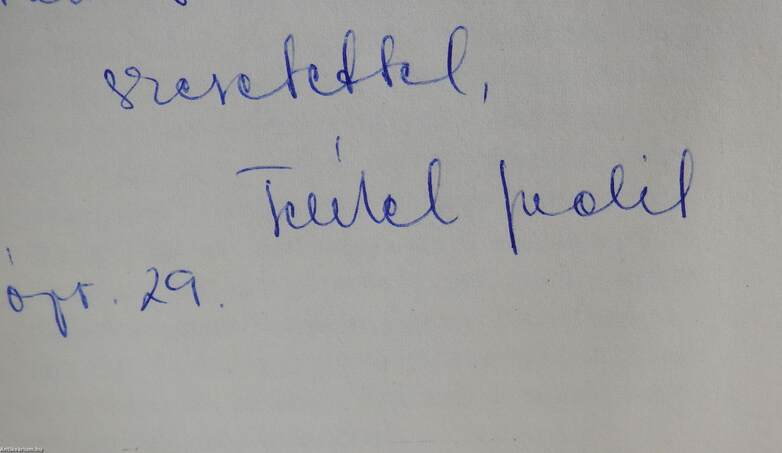 szeretettel,
Teutel Judit
ápr. 29.
Antikvarium.hu